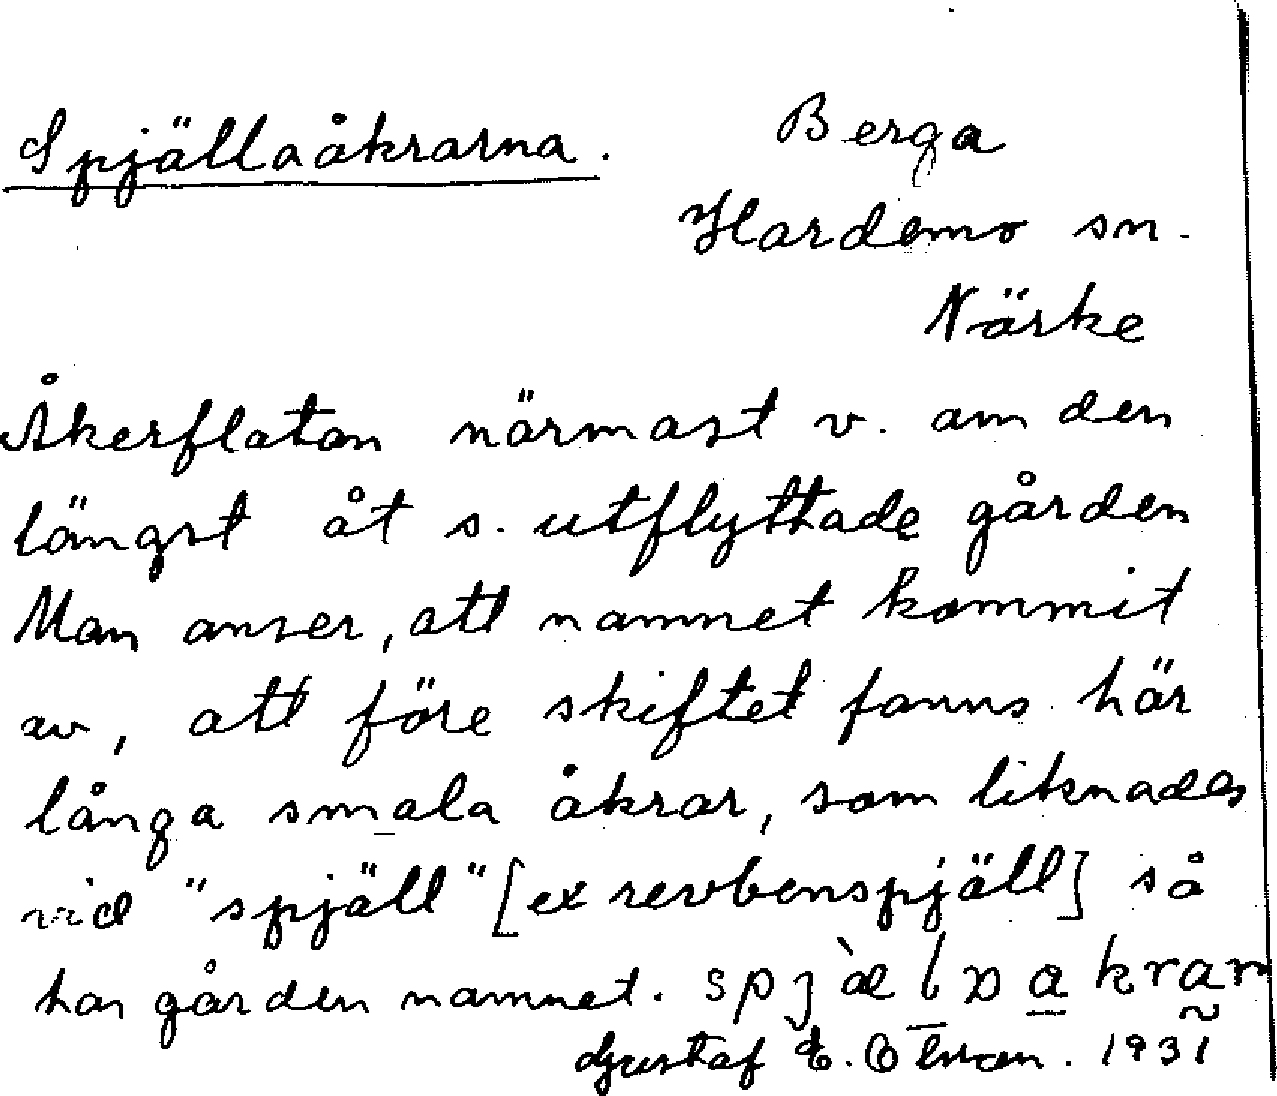 Spjällaåkrarna.
Berga
Hardemo sn.
Närke
Åkerflatan närmast v. om den
längst åt s. utflyttade gården
Man anser, att namnet kommit
av, att före skiftet fanns här
långa smala åkrar, som liknades
vid "spjäll" [ex revbenspjäll] så
har gården namnet.
Gustaf E. 1931